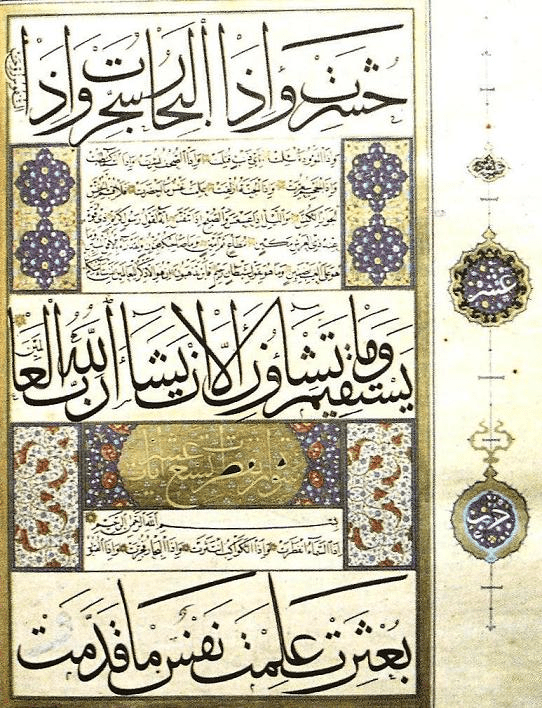 حُشِرَتْ وَإِذَا الْبِحَارُ سُجِّرَتْ وَإِذَا
النفوس زوجت
وَإِذَا الْمَوْءُودَةُ سُئِلَتْ بِأَيِّ ذَنْبٍ قُتِلَتْ وَإِذَا الصُّحُفُ نُشِرَتْ وَإِذَا السَّمَاءُ كُشِطَتْ
وَإِذَا الْجَحِيمُ سُعِّرَتْ وَإِذَا الْجَنَّةُ أُزْلِفَتْ عَلِمَتْ نَفْسٌ مَا أَحْضَرَتْ فَلَا أُقْسِمُ بِالْخُنَّسِ
الْجَوَارِ الْكُنَّسِ وَاللَّيْلِ إِذَا عَسْعَسَ وَالصُّبْحِ إِذَا تَنَفَّسَ إِنَّهُ لَقَوْلُ رَسُولٍ كَرِيمٍ ذِي قُوَّةٍ
عِنْدَ ذِي الْعَرْشِ مَكِينٍ مُطَاعٍ ثَمَّ أَمِينٍ وَمَا صَاحِبُكُمْ بِمَجْنُونٍ وَلَقَدْ رَآهُ بِالْأُفُقِ الْمُبِينِ
وَمَا هُوَ عَلَى الْغَيْبِ بِضَنِينٍ وَمَا هُوَ بِقَوْلِ شَيْطَانٍ رَجِيمٍ فَأَيْنَ تَذْهَبُونَ إِنْ هُوَ إِلَّا ذِكْرٌ لِلْعَالَمِينَ لِمَنْ شَاءَ مِنْكُمْ أَنْ
يَسْتَقِيمَ وَمَا تَشَاؤُنَ إِلَّا أَنْ يَشَاءَ اللَّهُ رَبُّ الْعَالَمِينَ
سورة انفطرت تسع عشر آيات
بِسْمِ اللَّهِ الرَّحْمَنِ الرَّحِيمِ
إِذَا السَّمَاءُ انْفَطَرَتْ وَإِذَا الْكَوَاكِبُ انْتَثَرَتْ وَإِذَا الْبِحَارُ فُجِّرَتْ وَإِذَا الْقُبُورُ
بُعْثِرَتْ عَلِمَتْ نَفْسٌ مَا قَدَّمَتْ
عشر
حزب